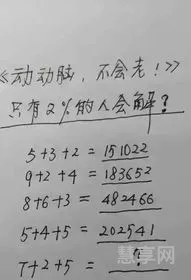 《动动脑，不会老！》
只有2%的人会解？
5+3+2=151022
9+2+4=183652
8+6+3=482466
5+4+5=202541
7+2+5=?
慧享网